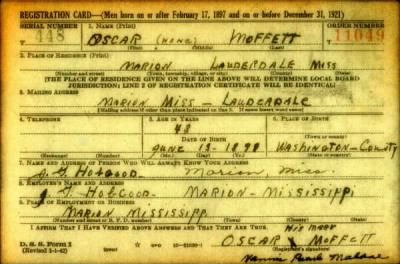 REGISTRATION CARD—(Men born on or after February 17, 1897 and on or before December 31, 1921)
SERIAL NUMBER 1. NAME (Print) ORDER NUMBER
448 OSCAR (NONE) MOFFETT 11049
(First) (Middle) (Last)
2. PLACE OF RESIDENCE (Print)
MARION LAUDERDALE MISS
(Number and street) (Town, township, village, or city) (County) (State)
(THE PLACE OF RESIDENCE GIVEN ON THE LINE ABOVE WILL DETERMINE LOCAL BOARD
JURISDICTION; LINE 2 OF REGISTRATION CERTIFICATE WILL BE IDENTICAL)
3. MAILING ADDRESS
MARION MISS - LAUDERDALE
(Mailing address if other than place indicated on line 2. If same insert word same)
4. TELEPHONE 5. AGE IN YEARS 6. PLACE OF BIRTH
43
DATE OF BIRTH (Town or county)
JUNE 13-1898 WASHINGTON-COUNTY
(Exchange) (Number) (Mo.) (Day) (Yr.) (State or country)
7. NAME AND ADDRESS OF PERSON WHO WILL ALWAYS KNOW YOUR ADDRESS
Hobgood Marion, Miss.
8. EMPLOYER'S NAME AND ADDRESS
HOBGOOD - MARION - MISSISSIPPI
9. PLACE OF EMPLOYMENT OR BUSINESS
MARION MISSISSIPPI
(Number and street or R. F. D. number) (Town) (County) (State)
I AFFIRM THAT I HAVE VERIFIED ABOVE ANSWERS AND THAT THEY ARE TRUE.
HIS MARK
D. S. S. Form 1 OSCAR MOFFETT
(Revised 1-1-42) (Registrant's signature)